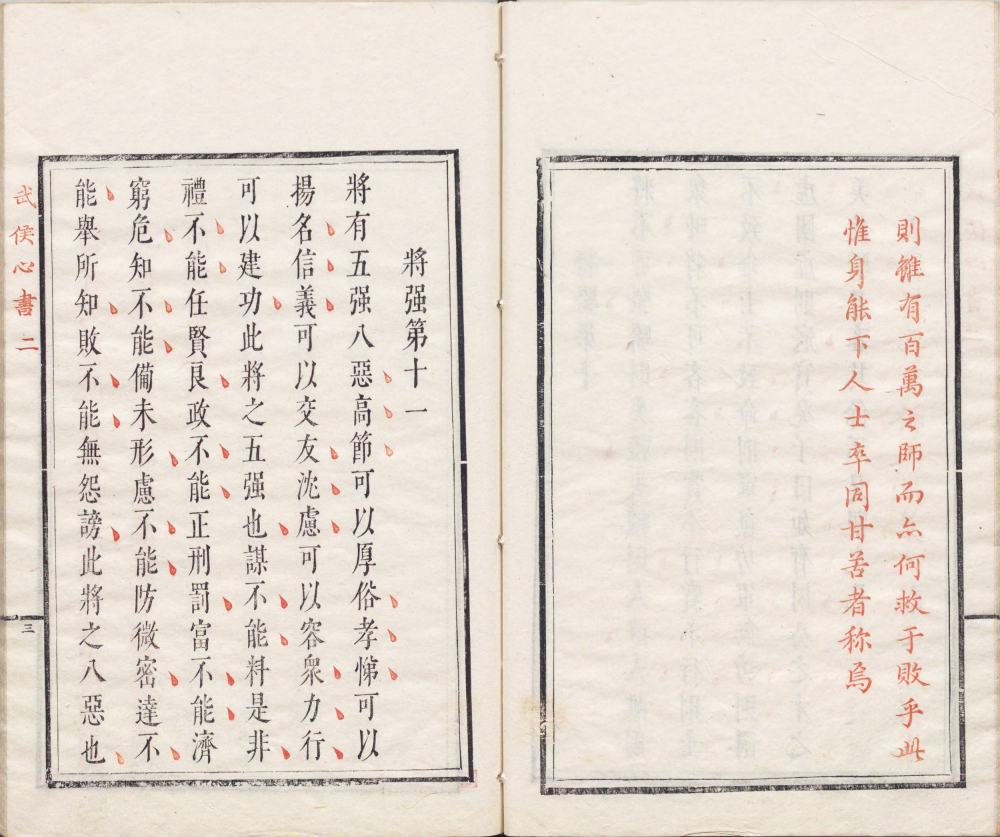 則雖有百萬之師而亦何救于敗乎此
惟身能下人士卒同甘苦者称焉
將强第十一
將有五强八惡高節可以厚俗孝悌可以
揚名信義可以交友沈慮可以容衆力行
可以建功此將之五强也謀不能料是非
禮不能任賢良政不能正刑罰富不能濟
窮危知不能備未形慮不能防微密達不
能舉所知敗不能無怨謗此將之八惡也
武侯心書 二
三